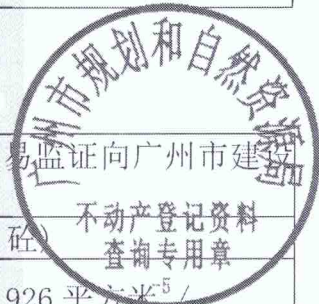 广州市规划和自然资源局
易监证向广州市建设
不动产登记资料
砼)
查询专用章
5
926 平方米/